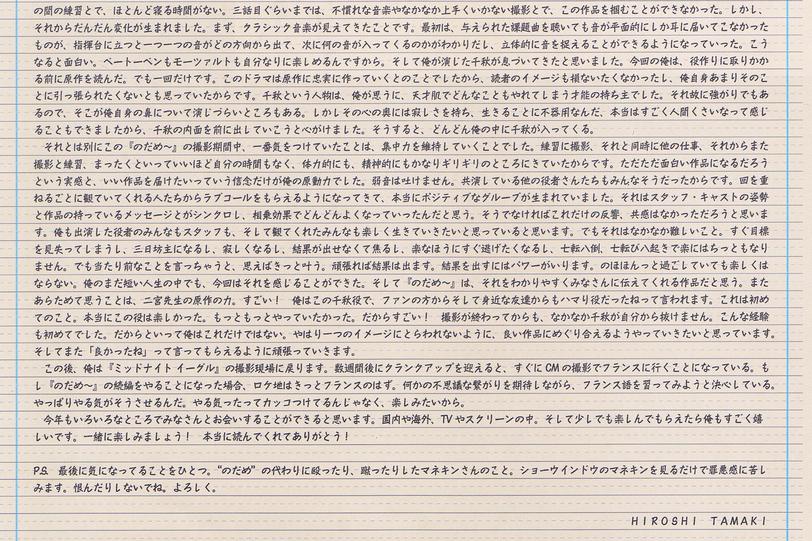 の間の練習とで、ほとんど寝る時間がない。三話目ぐらいまでは、不慣れな音楽やなかなか上手くいかない撮影とで、この作品を掴むことができなかった。しかし、
それからだんだん変化が生まれました。まず、クラシック音楽が見えてきたことです。最初は、与えられた課題曲を聴いても音が平面的にしか耳に届いてこなかった
ものが、指揮台に立つと一つ一つの音がどの方向から出て、次に何の音が入ってくるのかがわかりだし、立体的に音を捉えることができるようになっていった。こう
なると面白い。ベートーベンもモーツァルトも自分なりに楽しめるんですから。そして俺が演じた千秋が息づいてきたと思いました。今回の俺は、役作りに取りかか
る前に原作を読んだ。でも一回だけです。このドラマは原作に忠実に作っていくとのことでしたから、読者のイメージも損ないたくなかったし、俺自身あまりそのこ
とに引っ張られたくないとも思っていたからです。千秋という人物は、俺が思うに、天才肌でどんなこともやれてしまう才能の持ち主でした。それ故に強がりでもあ
るので、そこが俺自身の鼻について演じづらいところもある。しかしその心の奥には寂しさを持ち、生きることに不器用なんだ、本当はすごく人間くさいなって感じ
ることもできましたから、千秋の内面を前に出していこうと心がけました。そうすると、どんどん俺の中に千秋が入ってくる。
それとは別にこの『のだめ〜』の撮影期間中、一番気をつけていたことは、集中力を維持していくことでした。練習に撮影、それと同時に他の仕事、それからまた
撮影と練習、まったくといっていいほど自分の時間もなく、体力的にも、精神的にもかなりギリギリのところにきていたからです。ただただ面白い作品になるだろう
という実感と、いい作品を届けたいっていう信念だけが俺の原動力でした。弱音は吐けません。共演している他の役者さんたちもみんなそうだったからです。回を重
ねるごとに観ていてくれる人たちからラブコールをもらえるようになってきて、本当にポジティブなグループが生まれていました。それはスタッフ・キャストの姿勢
と作品の持っているメッセージとがシンクロし、相乗効果でどんどんよくなっていったんだと思う。そうでなければこれだけの反響、共感はなかっただろうと思いま
す。俺も出演した役者のみんなもスタッフも、そして観てくれたみんなも楽しく生きていきたいと思っていると思います。でもそれはなかなか難しいこと。すぐ目標
を見失ってしまうし、三日坊主になるし、寂しくなるし、結果が出せなくて焦るし、楽なほうにすぐ逃げたくなるし、七転八倒、七転び八起きで楽にはちっともなり
ません。でも当たり前なことを言っちゃうと、思えばきっと叶う。頑張れば結果は出ます。結果を出すにはパワーがいります。のほほんっと過ごしていても楽しくは
ならない。俺のまだ短い人生の中でも、今回はそれを感じることができた。そして『のだめ』は、それをわかりやすくみなさんに伝えてくれる作品だと思う。また
あらためて思うことは、二宮先生の原作の力。すごい！　俺はこの千秋役で、ファンの方からそして身近な友達からもハマり役だったねって言われます。これは初め
てのこと。本当にこの役は楽しかった。もっともっとやっていたかった。だからすごい！　撮影が終わってからも、なかなか千秋が自分から抜けません。こんな経験
も初めてでした。だからといって俺はこれだけではない。やはり一つのイメージにとらわれないように、良い作品にめぐり合えるようやっていきたいと思っています。
そしてまた「良かったね」って言ってもらえるように頑張っていきます。
この後、俺は『ミッドナイト イーグル』の撮影現場に戻ります。数週間後にクランクアップを迎えると、すぐにCMの撮影でフランスに行くことになっている。も
し『のだめ〜』の続編をやることになった場合、ロケ地はきっとフランスのはず。何かの不思議な繋がりを期待しながら、フランス語を習ってみようと決心している。
やっぱりやる気がそうさせるんだ。やる気ったってカッコつけてるんじゃなく、楽しみたいから。
今年もいろいろなところでみなさんとお会いすることができると思います。国内や海外、TVやスクリーンの中。そして少しでも楽しんでもらえたら俺もすごく嬉
しいです。一緒に楽しみましょう！　本当に読んでくれてありがとう！
P.S.　最後に気になってることをひとつ。“のだめ”の代わりに殴ったり、蹴ったりしたマネキンさんのこと。ショーウインドウのマネキンを見るだけで罪悪感に苦し
みます。恨んだりしないでね。よろしく。
HIROSHI TAMAKI